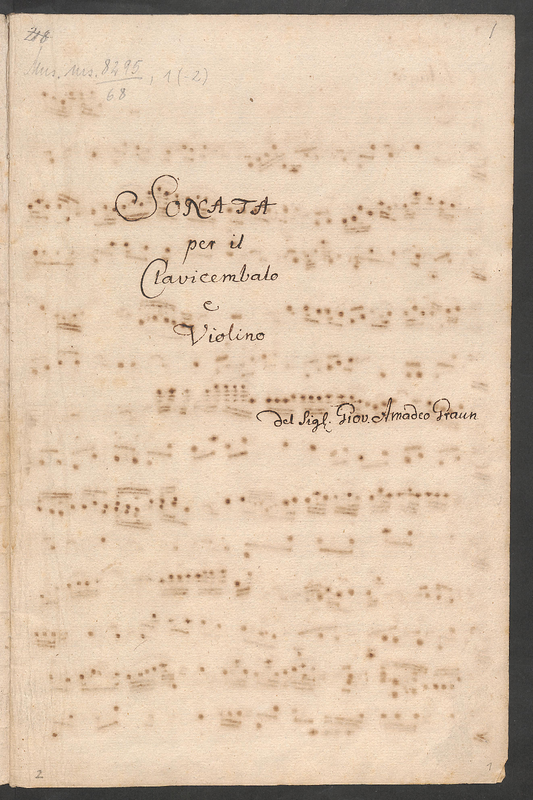 1
Mus. ms. 8295, 1(-2)
68
SONATA
per il
Clavicembalo
e
Violino
del Sigl. Giov. Amadeo Graun
2
1